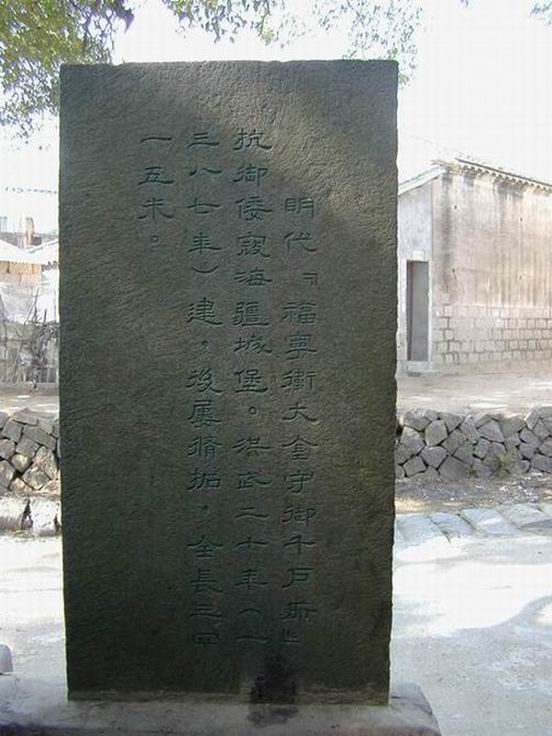 明代「福寧衛大金守御千戶所」
抗御倭寇海疆城堡。洪武二十年(一
三八七年)建,後屢脩拓,全長三四
一五米。